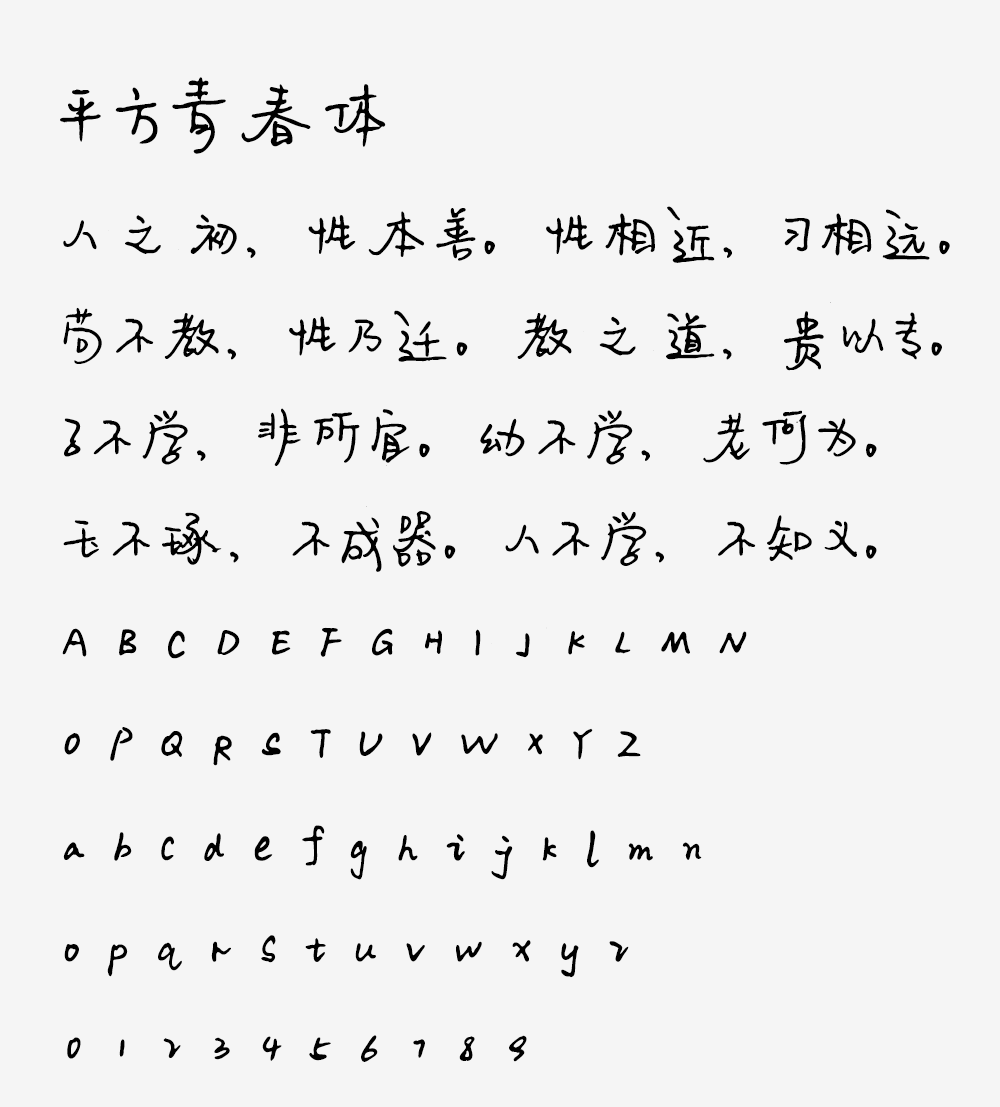 平方青春体
人之初，性本善。性相近，习相远。
苟不教，性乃迁。教之道，贵以专。
子不学，非所宜。幼不学，老何为。
玉不琢，不成器。人不学，不知义。
A B C D E F G H I J K L M N
O P Q R S T U V W X Y Z
a b c d e f g h i j k l m n
o p q r s t u v w x y z
0 1 2 3 4 5 6 7 8 9